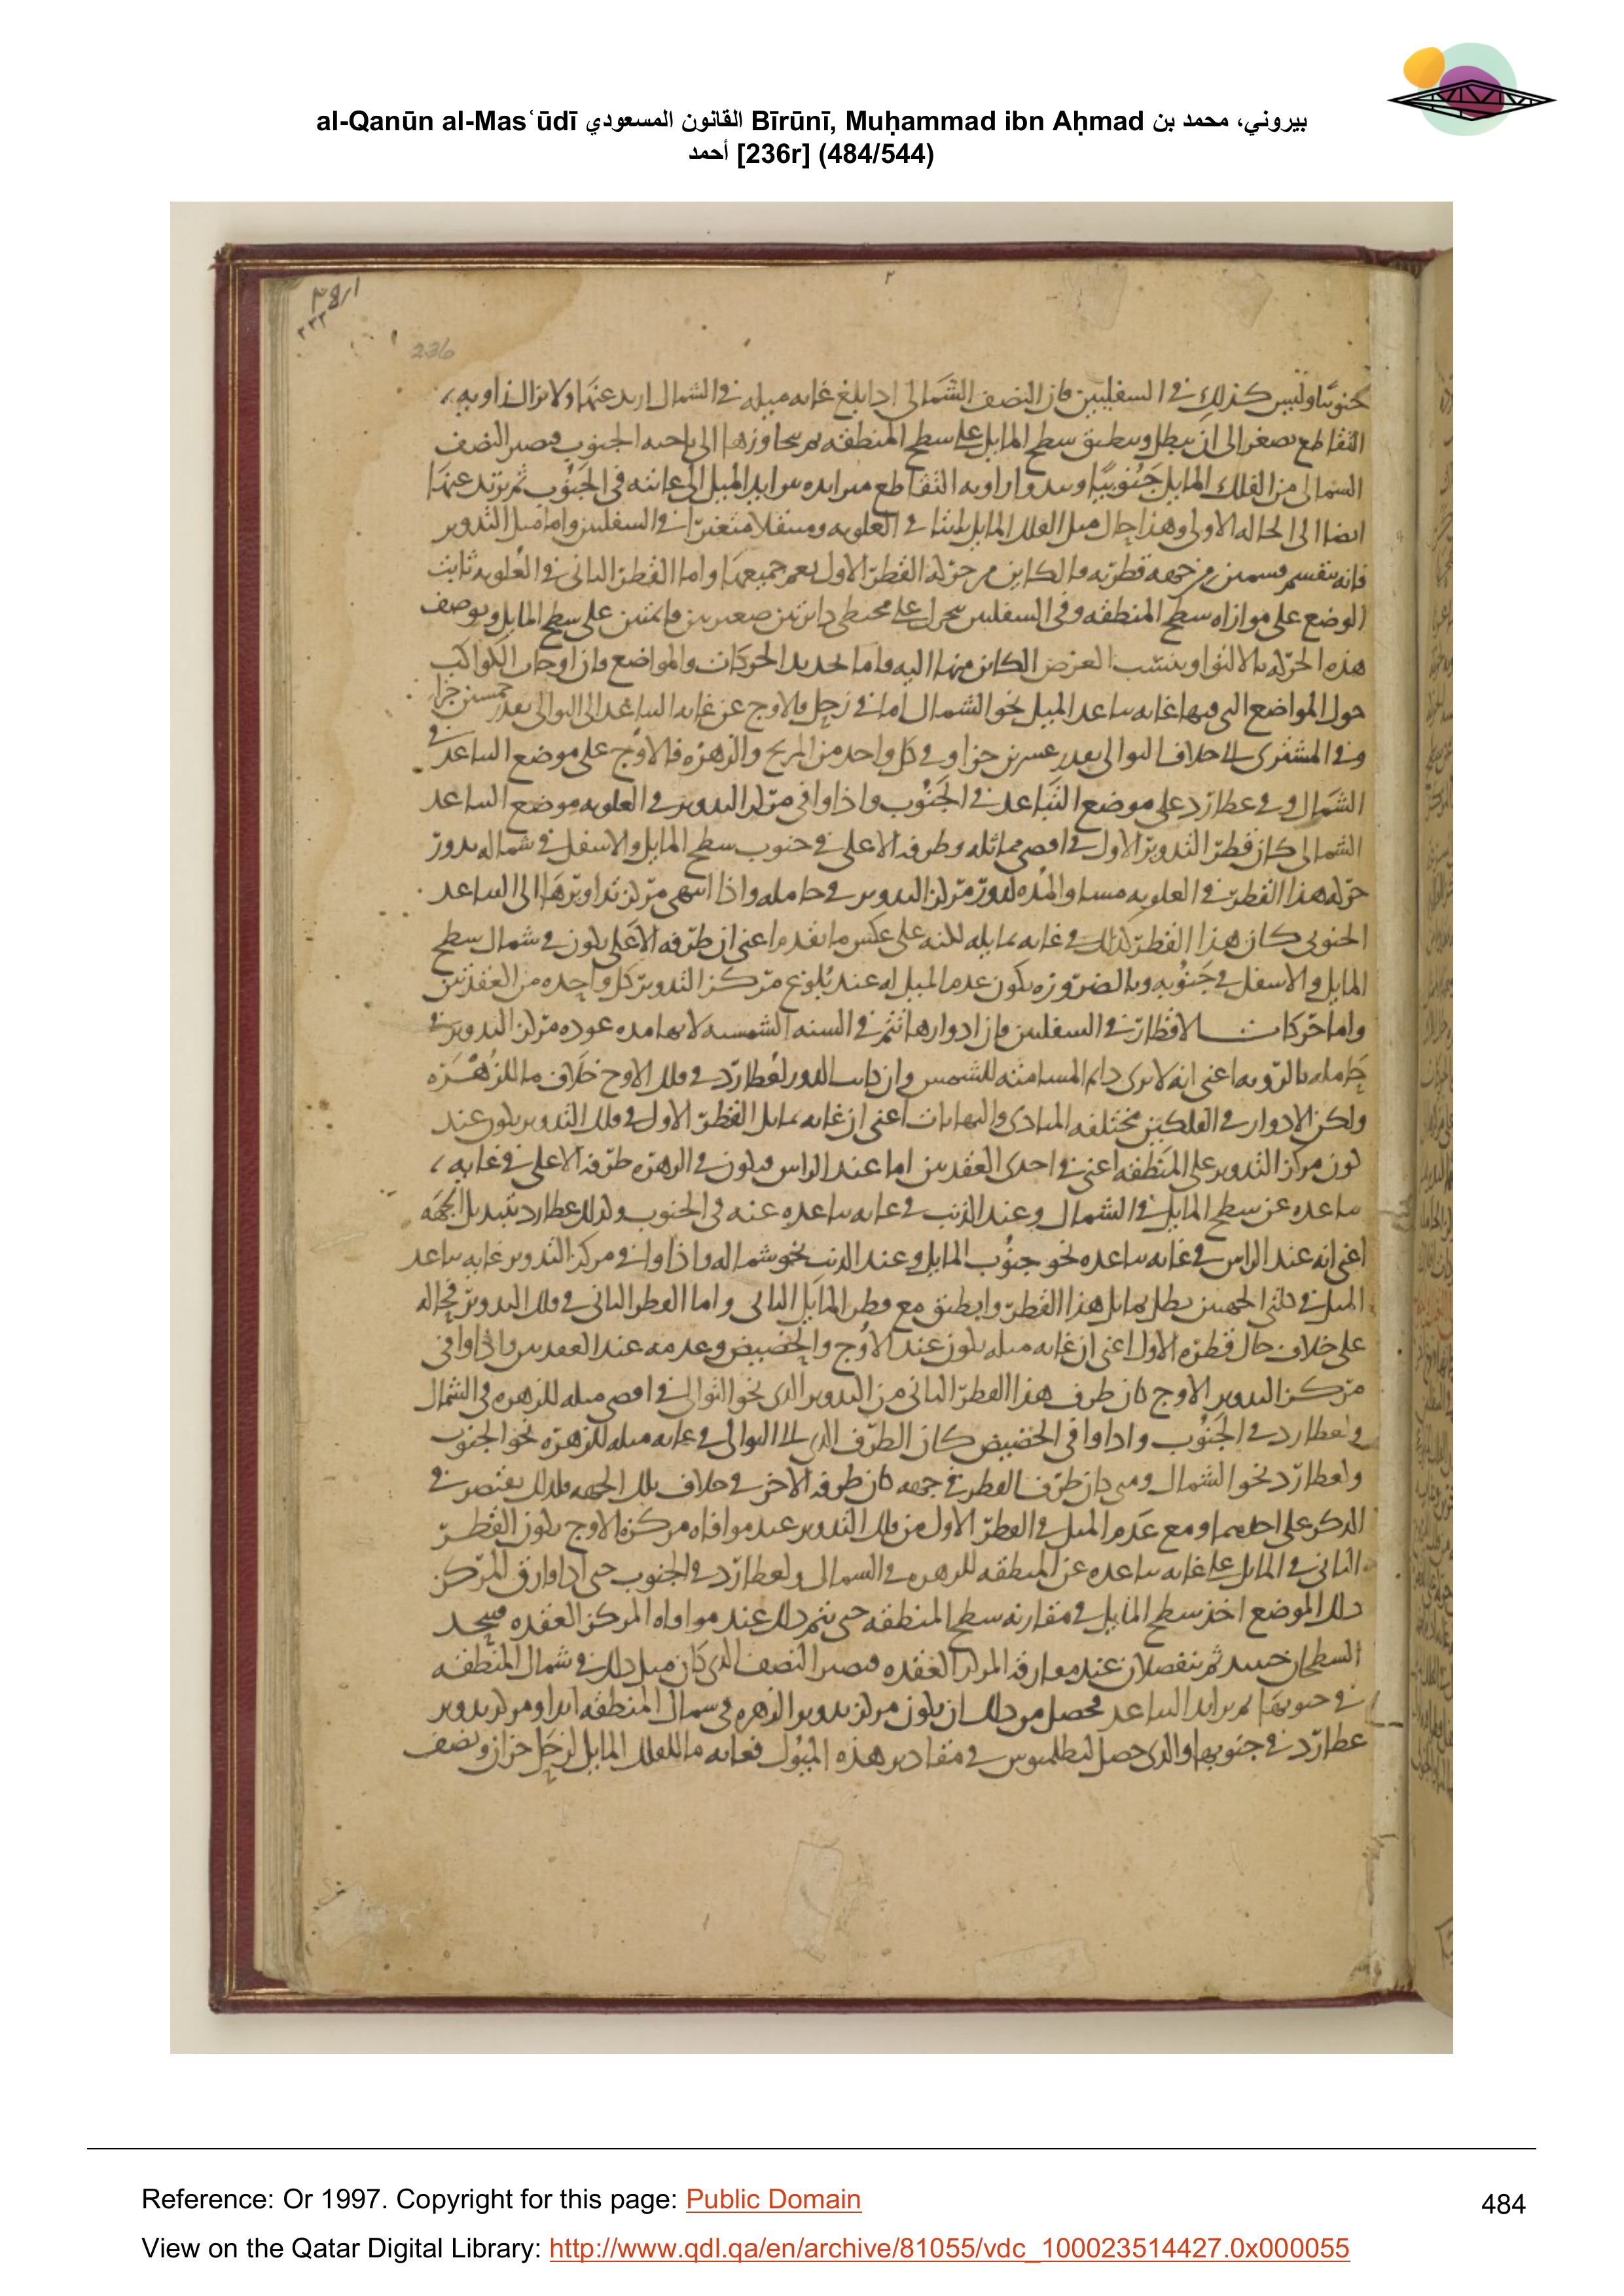 al-Qanūn al-Masʿūdī القانون المسعودي Bīrūnī, Muḥammad ibn Aḥmad بيروني، محمد بن
أحمد [236r] (484/544)
236
جنوبيا وليس كذلك في السفليين فان النصف الشمالي اذا بلغ غايه ميله في الشمال ارتد عنها ولا تزال زاويه
التقاطع تصغر الى ان تبطل وينطبق سطح المايل على سطح المنطقه ثم يتجاوزها الى ناحيه الجنوب فيصير النصف
الشمالي من الفلك المايل جنوبيا وتبدوا زاويه التقاطع متزايده بتزايد الميل الى غايته في الجنوب ثم يرتد عنها
ايضا الى الحاله الاولى وهذا حال ميل الفلك المايل ثابتا في العلويه ومتنقلا متغيرا في السفليين واما ميل التدوير
فانه ينقسم قسمين من جهه قطريه فالكاين من حركه القطر الاول يعم جميعها واما القطر الثاني في العلويه ثابت
الوضع على موازاه سطح المنطقه وفي السفليين يتحرك على محيطي دايرتين صغيرتين قايمتين على سطح المايل ويوصف
هذه الحركه بالالتوا وينسب العرض الكاين منها اليه واما تحديد الحركات والمواضع فان اوجات الكواكب
حول المواضع التي فيها غايه تباعد الميل نحو الشمال اما في زحل فالاوج عن غايه التباعد الى التوالي بقدر خمسين جزا
وفي المشتري الى خلاف التوالي بقدر عشرين جزا وفي كل واحد من المريخ والزهره فالاوج على موضع التباعد في
الشمال وفي عطارد على موضع التباعد في الجنوب واذا وافى مركز التدوير في العلويه موضع التباعد
الشمالي كان قطر التدوير الاول في اقصى مماثله وطرفه الاعلى في جنوب سطح المايل والاسفل في شماله يدور
حركه هذا القطر في العلويه مساو لمده تدور مركز التدوير في حامله واذا انتهى مركز تداويرها الى التباعد
الجنوبي كان هذا القطر كذلك في غايه تمايله لكنه على عكس ما تقدم اعني ان طرفه الاعلى يكون في شمال سطح
المايل والاسفل في جنوبه وبالضروره يكون عدم الميل له عند بلوغ مركز التدوير كل واحده من العقدتين
واما حركات الاقطار في السفليين فان ادوارها تتم في السنه الشمسيه لانها مده عوده مركز التدوير في
حامله بالرويه اعني انه لا يرى دايم المسامته للشمس وان كانت الدور لعطارد في فلك الاوج خلاف ما للزهره
ولكن الادوار في الفلكين مختلفه المبادي والنهايات اعني ان غايه تمايل القطر الاول في فلك التدوير يكون عند
كون مركز التدوير على المنطقه اعني في احدى العقدتين اما عند الراس فيكون في الزهره طرفه الاعلى في غايه
تباعده عن سطح المايل في الشمال وعند الذنب في غايه تباعده عنه في الجنوب وكذلك عطارد بتبديل الجهه
اعني انه عند الراس في غايه تباعده نحو جنوب المايل وعند الذنب نحو شماله واذا وافى مركز التدوير غايه تباعد
الميل في كلتي الجهتين بطل تمايل هذا القطر وانطبق مع قطر المايل الثاني واما القطر الثاني في فلك التدوير فحاله
على خلاف حال قطره الاول اعني ان غايه ميله يكون عند الاوج والحضيض وعدمه عند العقدتين واذا وافى
مركز التدوير الاوج كان طرف هذا القطر الثاني من التدوير الذي نحو التوالي في اقصى ميله للزهره في الشمال
ولعطارد في الجنوب واذا وافى الحضيض كان الطرف الذي الى التوالي في غايه ميله للزهره نحو الجنوب
ولعطارد نحو الشمال ومتى كان طرف القطر في جهه كان طرفه الاخر في خلاف تلك الجهه فلذلك يقتصر في
الذكر على احدهما ومع عدم الميل في القطر الاول من فلك التدوير عند موافاه مركزه الاوج يكون القطر
الثاني في المايل على غايه تباعده عن المنطقه للزهره في الشمال ولعطارد في الجنوب حتى اذا فارق المركز
ذلك الموضع اخذ سطح المايل في مقاربه سطح المنطقه حتى يتم ذلك عند موافاه المركز العقده فيتحد
السطحان حينيذ ثم ينفصلان عند مفارقه المركز العقده فيصير النصف الذي كان قبل ذلك في شمال المنطقه
في جنوبها ثم يتزايد التباعد فيحصل من ذلك ان يكون مركز تدوير الزهره في شمال المنطقه ابدا ومركز تدوير
عطارد في جنوبها والذي حصل لبطلميوس في مقادير هذه الميول فغايه ما للفلك المايل لزحل جزان ونصف
Reference: Or 1997. Copyright for this page: Public Domain
484
View on the Qatar Digital Library: http://www.qdl.qa/en/archive/81055/vdc_100023514427.0x000055